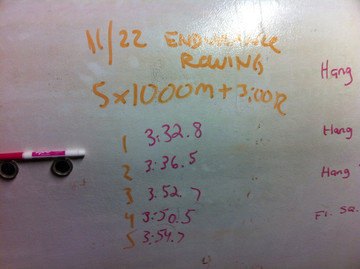 11/22 ENDURANCE
ROWING
5x1000m + 3:00R
1 3:32.8
2 3:36.5
3 3:52.7
4 3:50.5
5 3:54.7
Hang
Hang
Hang